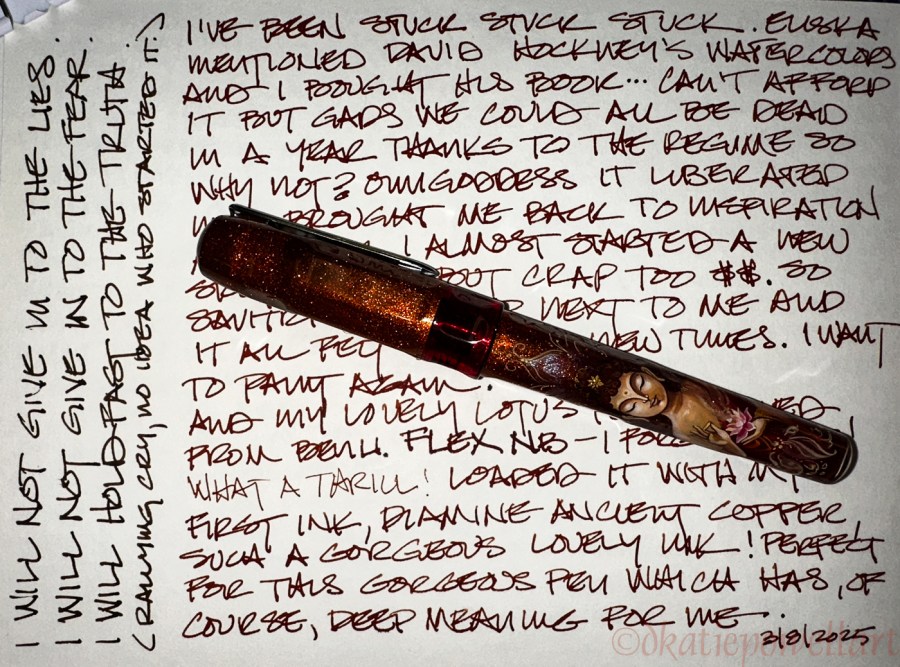 I WILL NOT GIVE IN TO THE LIES.
I WILL NOT GIVE IN TO THE FEAR.
I WILL HOLD FAST TO THE TRUTH
(RALLYING CRY, NO IDEA WHO STARTED IT.)
I'VE BEEN STUCK STUCK STUCK. ELISKA
MENTIONED DAVID HOCKNEY'S WATERCOLORS
AND I BOUGHT HIS BOOK... CAN'T AFFORD
IT BUT GADS WE COULD ALL BE DEAD
IN A YEAR THANKS TO THE REGIME SO
WHY NOT? OMYGODDESS IT LIBERATED
BROUGHT ME BACK TO INSPIRATION
I ALMOST STARTED A NEW
BUT CRAP TOO $$. SO
NEXT TO ME AND
NEW TUNES. I WANT
IT ALL
TO PAINT AGAIN.
AND MY LOVELY LOTUS
FROM BENU. FLEX NIB – I
WHAT A THRILL! LOADED IT WITH MY
FIRST INK, DIAMINE ANCIENT COPPER,
SUCH A GORGEOUS LOVELY INK! PERFECT
FOR THIS GORGEOUS PEN WHICH HAS, OF
COURSE, DEEP MEANING FOR ME.
3/8/2025
©dkatiepowellart